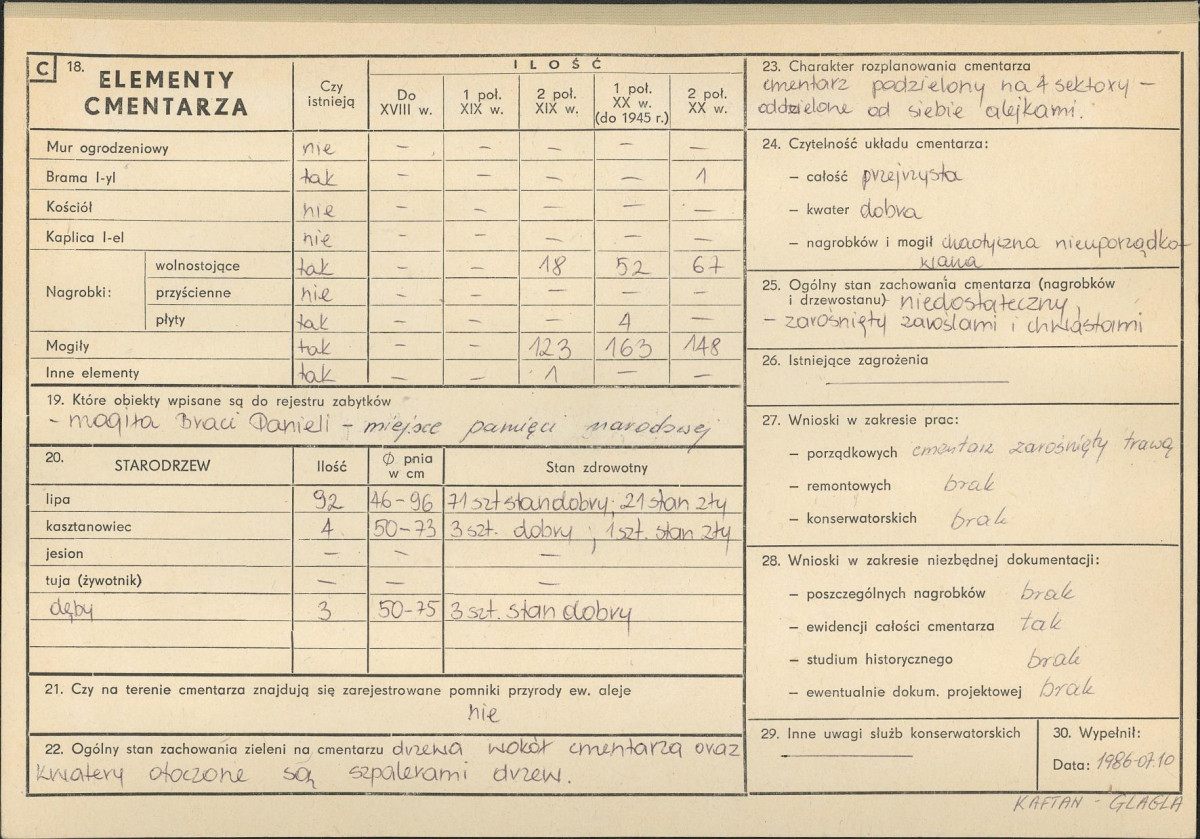 C 18. ELEMENTY CMENTARZA
Czy istnieją
ILOŚĆ
Do XVIII w.
1 poł. XIX w.
2 poł. XIX w.
1 poł. XX w. (do 1945 r.)
2 poł. XX w.
Mur ogrodzeniowy nie – – – – –
Brama l-yl tak – – – – 1
Kościół nie – – – – –
Kaplica l-el nie – – – – –
Nagrobki:
wolnostojące tak – – 18 52 67
przyścienne nie – – – – –
płyty tak – – – 4
Mogiły tak – – 123 163 148
Inne elementy tak – – 1 – –
19. Które obiekty wpisane są do rejestru zabytków
- mogiła Braci Danieli – miejsce pamięci narodowej
20. STARODRZEW Ilość Ø pnia w cm Stan zdrowotny
lipa 92 46-96 71 szt stan dobry; 21 stan zły
kasztanowiec 4 50-73 3 szt. dobry; 1 szt. stan zły
jesion – – –
tuja (żywotnik) – – –
dęby 3 50-75 3 szt. stan dobry
21. Czy na terenie cmentarza znajdują się zarejestrowane pomniki przyrody ew. aleje
nie
22. Ogólny stan zachowania zieleni na cmentarzu drzewa wokół cmentarza oraz
kwatery otoczone są szpalerami drzew.
23. Charakter rozplanowania cmentarza
cmentarz podzielony na 4 sektory –
oddzielone od siebie alejkami.
24. Czytelność układu cmentarza:
– całość przejrzysta
– kwater dobra
– nagrobków i mogił chaotyczna nieuporządko-
wana
25. Ogólny stan zachowania cmentarza (nagrobków
i drzewostanu) niedostateczny,
– zarośnięty zaroślami i chwastami
26. Istniejące zagrożenia
27. Wnioski w zakresie prac:
– porządkowych cmentarz zarośnięty trawą
– remontowych brak
– konserwatorskich brak
28. Wnioski w zakresie niezbędnej dokumentacji:
– poszczególnych nagrobków brak
– ewidencji całości cmentarza tak
– studium historycznego brak
– ewentualnie dokum. projektowej brak
29. Inne uwagi służb konserwatorskich
30. Wypełnił:
Data: 1986-07.10
KAFTAN - GLAGLA